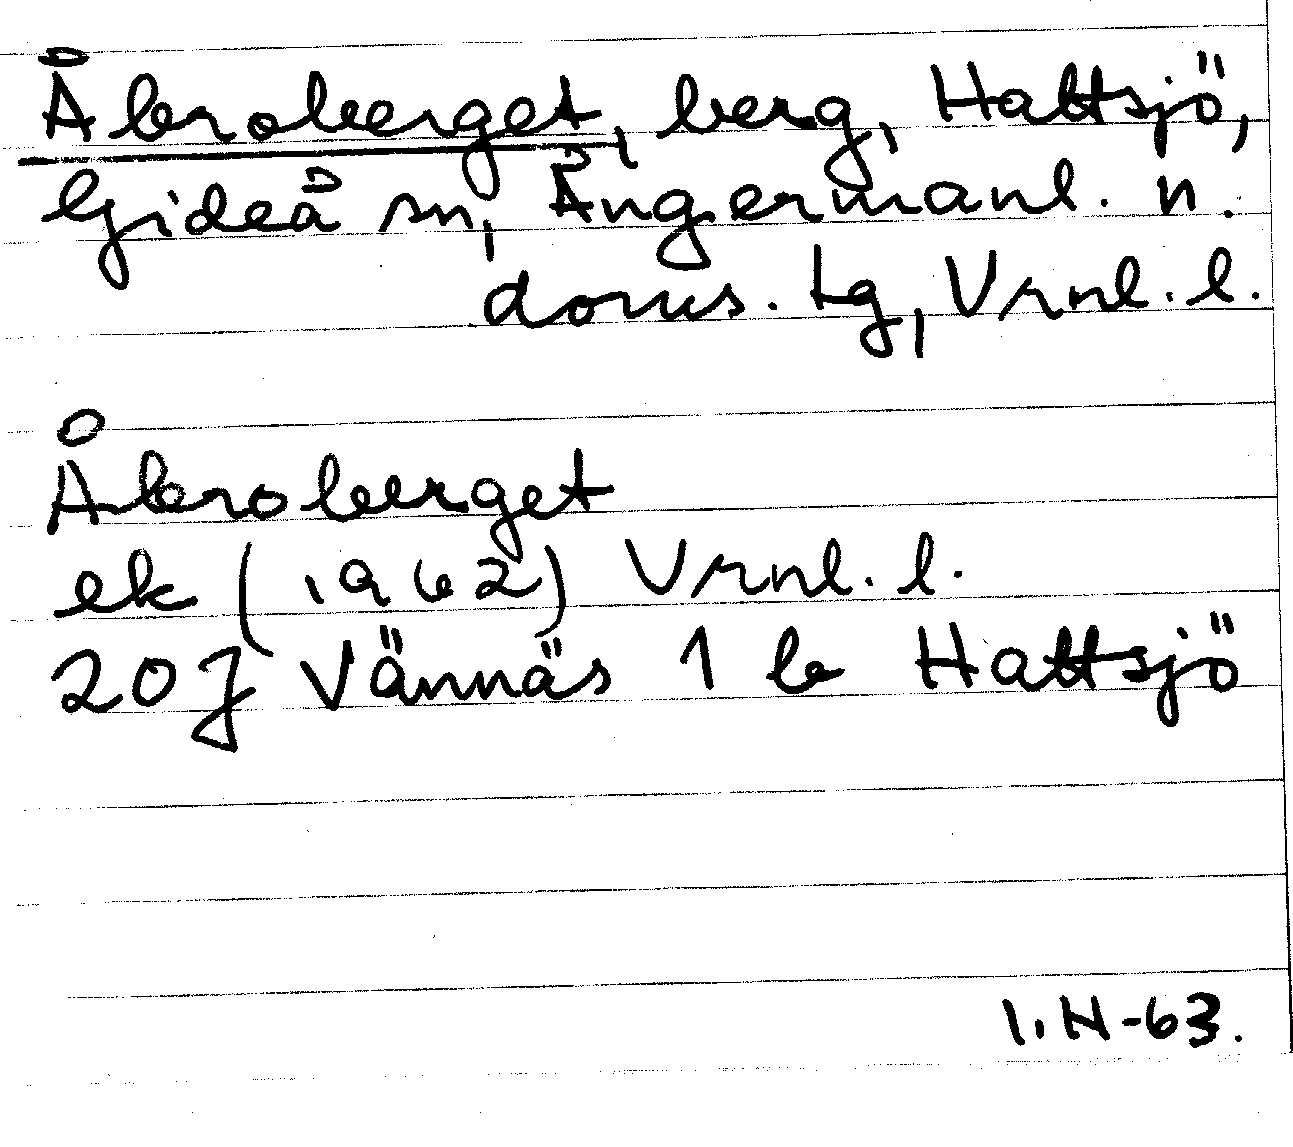 Åbroberget, berg, Hattsjö,
Gideå sn, Ångermanl. n.
doms. tg, Vrnl. l.
Åbroberget
ek (1962) Vrnl. l.
20J Vännäs 1 b Hattsjö
I. H-63.